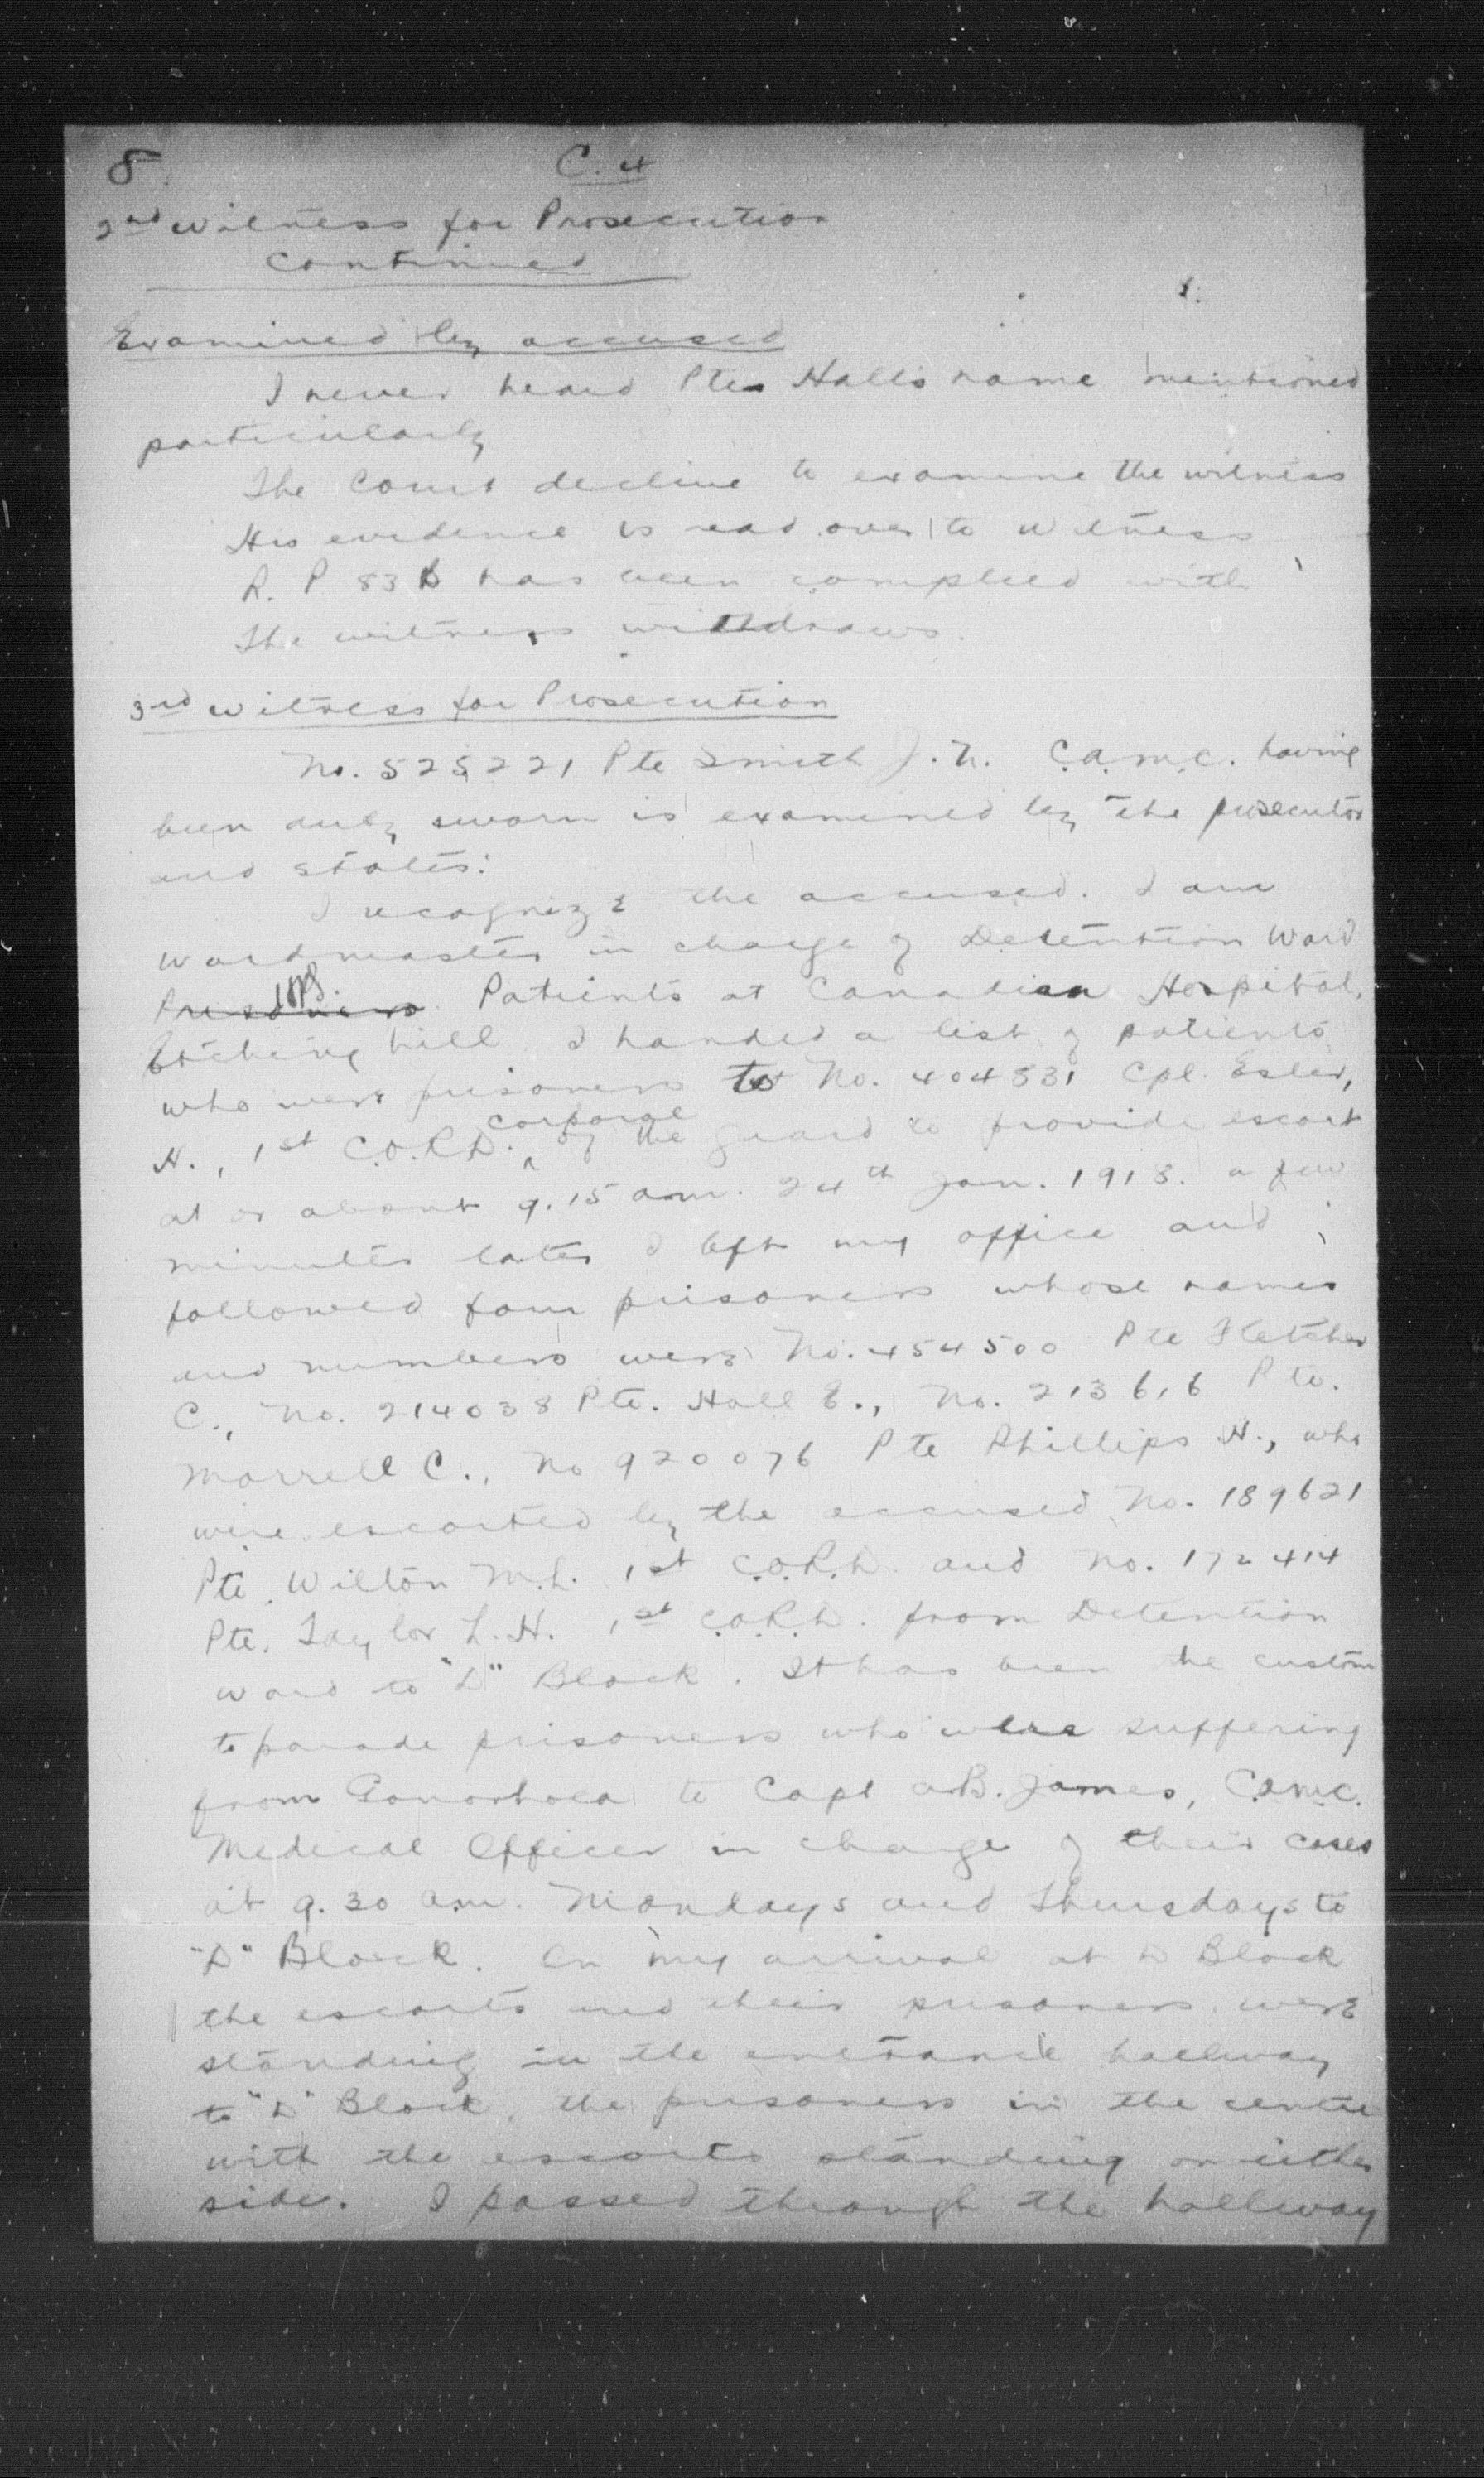 8
C. 4
2nd witness for Prosecution
continued
Examined by accused
I never heard Pte Halls name mentioned
particularly
The Court decline to examine the witness
His evidence is read over to witness
R. P 83 B has been complied with
The witness withdraws.
3rd witness for Prosecution
No. 525221 Pte Smith J. N. C.A.M.C. having
been duly sworn is examined by the prosecutor
and states:
I recognize the accused. I am
wardmaster in charge of Detention Ward
Prisoners Patients at Canadian Hospital,
Etching hill. I handed a list of patients
who were prisoners to No. 404531 Cpl. Esler,
H., 1st C.O.R.D. corporal of the guard to provide escort
at or about 9.15 a.m. 24th Jan. 1918. a few
minutes later I left my office and
followed four prisoners whose names
and numbers were No. 454500 Pte Fletcher
C., No. 214038 Pte. Hall E., No. 213616 Pte.
Morrell C., No 920076 Pte Phillips H., who
were escorted by the accused No. 189621
Pte. Wilton M.L. 1st C.O.R.D. and No. 172414
Pte. Taylor L.H. 1st C.O.R.D. from Detention
ward to "D" Block. It has been the custom
to parade prisoners who were suffering
from Gonorhoea to Capt A.B. James, C.A.M.C.
Medical Officer in charge of their cases
at 9.30 a.m. Mondays and Thursdays to
"D" Block. On my arrival at D Block
the escorts and their prisoners were
standing in the entrance hallway
to "D" Block, the prisoners in the centre
with the escorts standing on either
side. I passed through the hallway